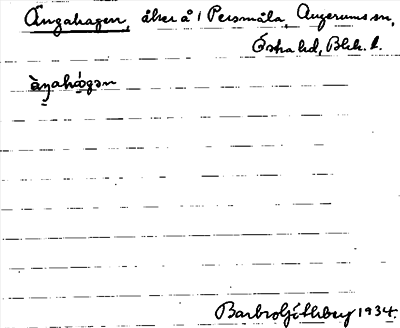 Ängahagen, åker å 1 Persmåla, Augerums sn,
Östra hd, Blek. l.
Barbro 1934.